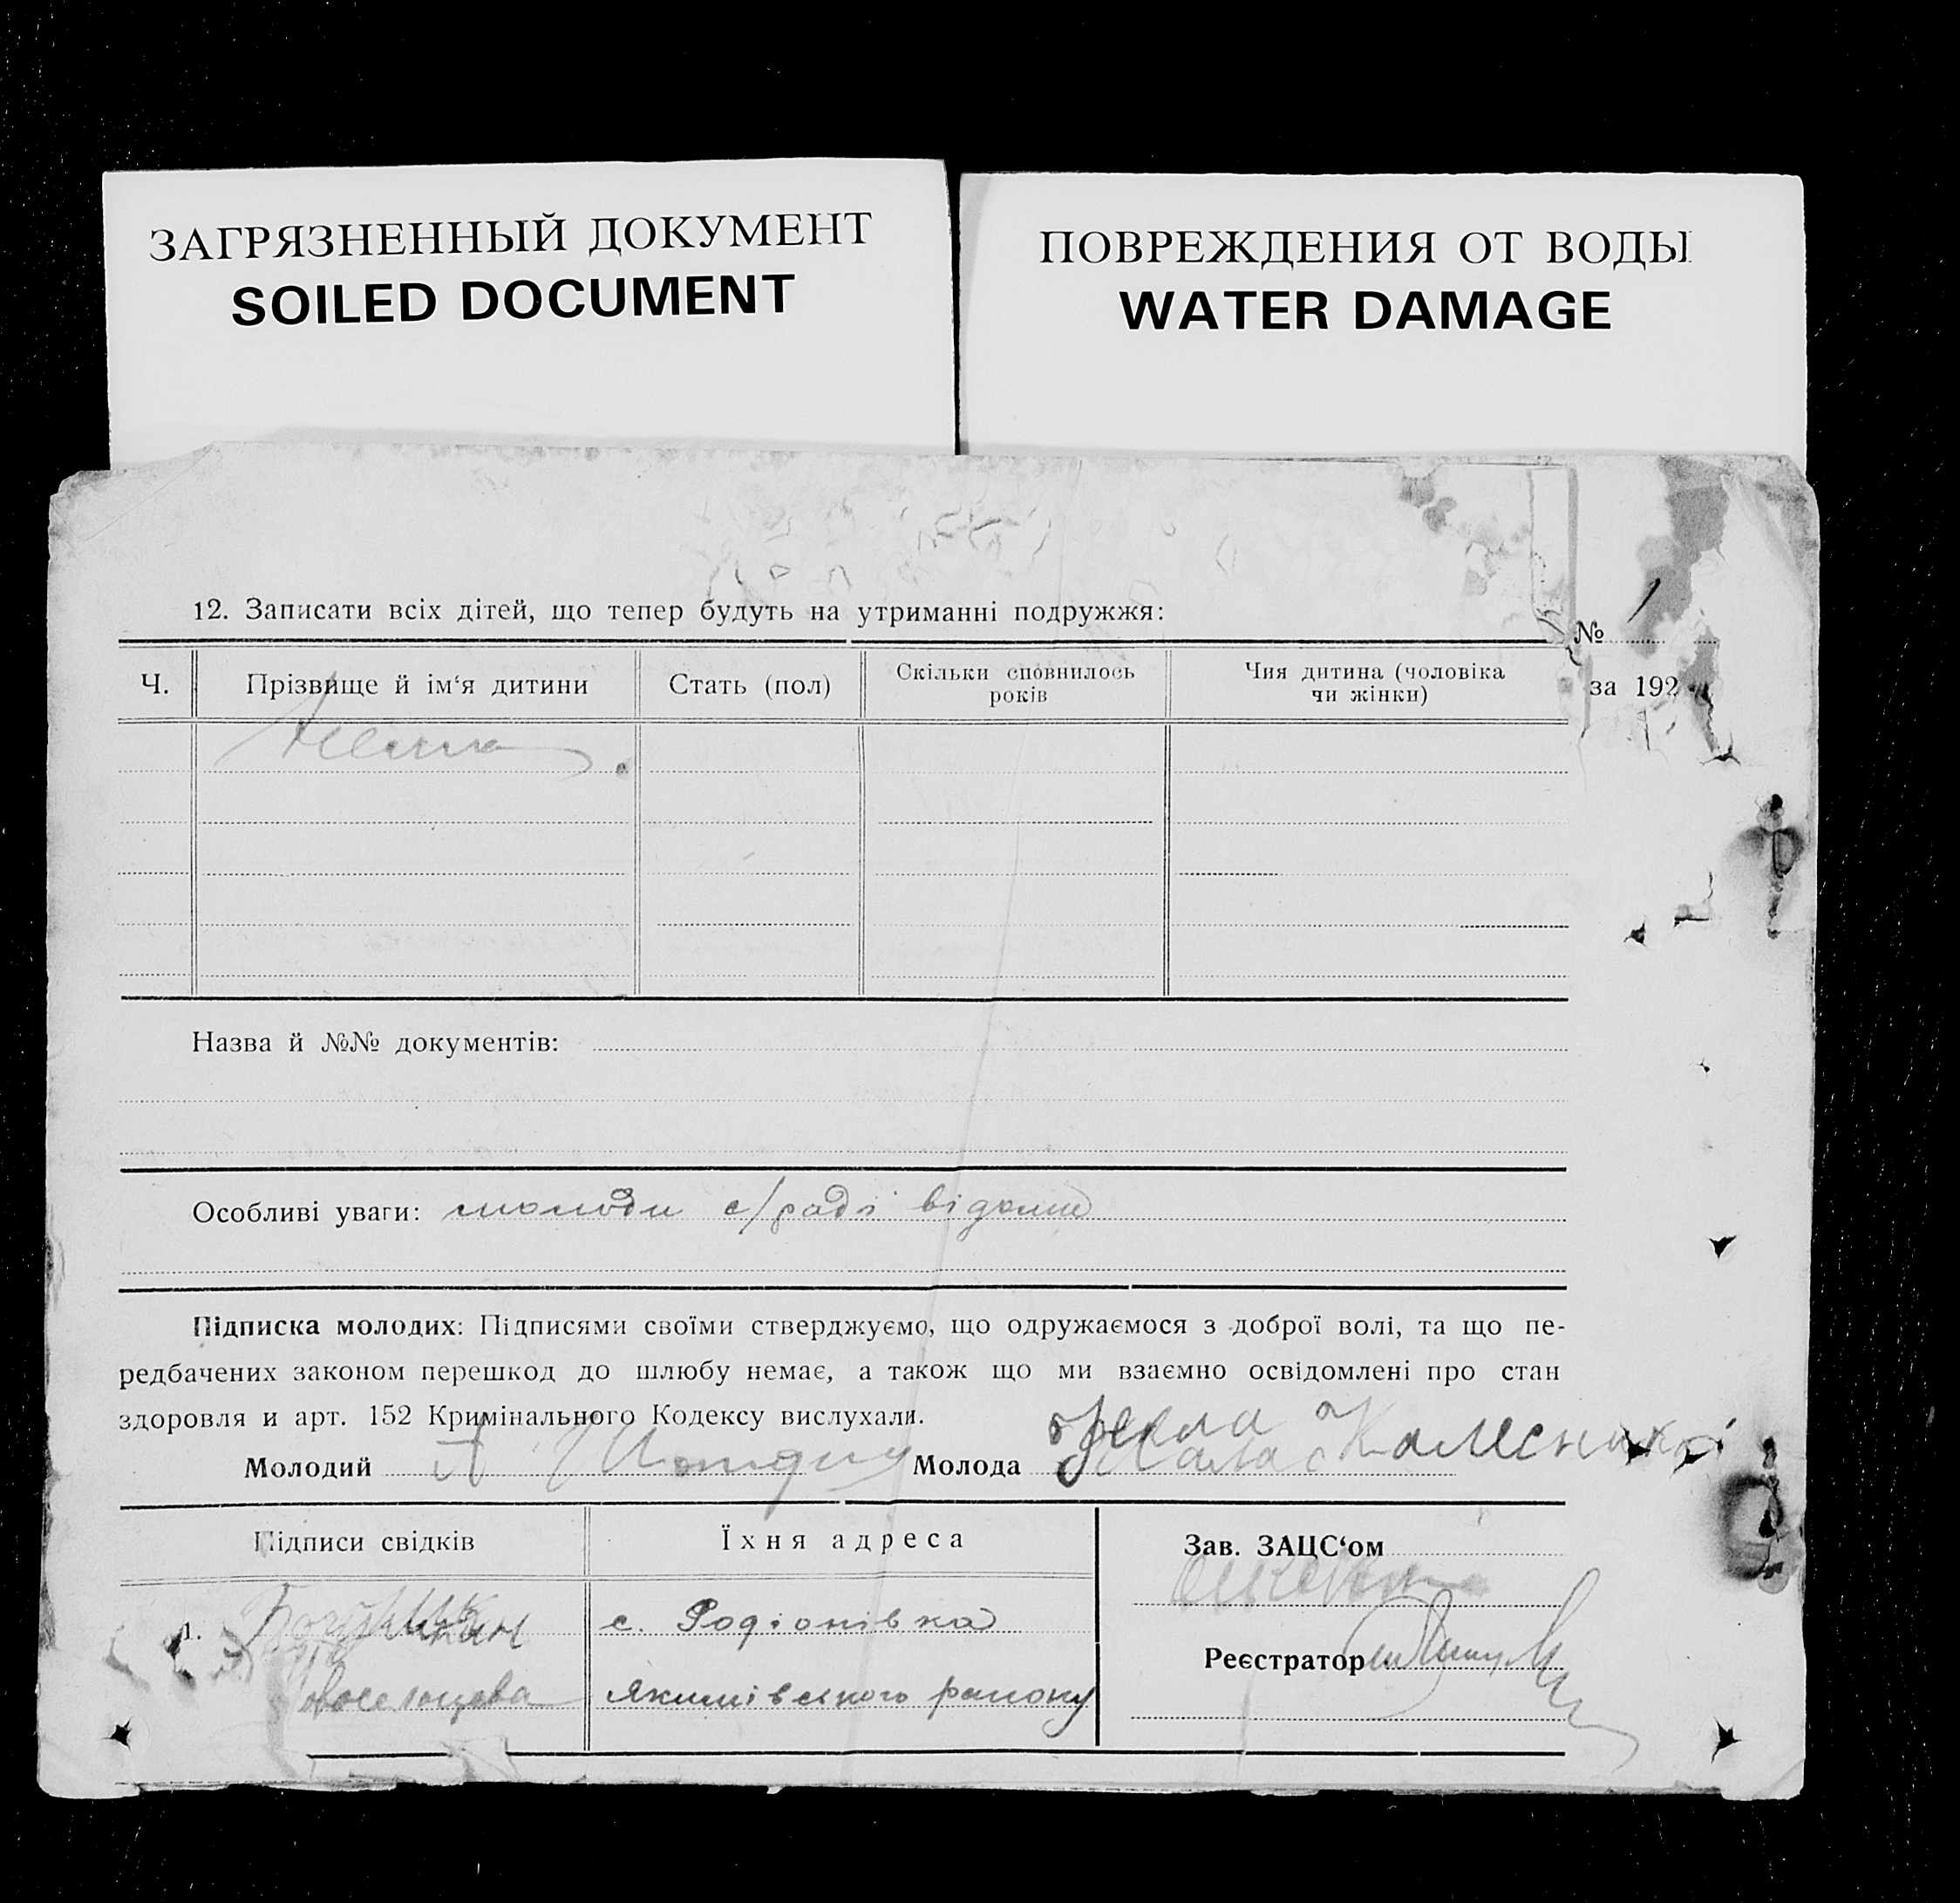 ЗАГРЯЗНЕННЫЙ ДОКУМЕНТ
SOILED DOCUMENT
ПОВРЕЖДЕНИЯ ОТ ВОДЫ
WATER DAMAGE
12. Записати всіх дітей, що тепер будуть на утриманні подружжя:
№ 1
за 192
Ч.
Прізвище й ім‘я дитини
Стать (пол)
Скільки сповнилось
років
Чия дитина (чоловіка
чи жінки)
Нема
Назва й №№ документів:
Особливі уваги: молоди с/раді відомі
Підписка молодих: Підписями своїми стверджуємо, що одружаємося з доброї волі, та що пе-
редбачених законом перешкод до шлюбу немає, а також що ми взаємно освідомлені про стан
здоровля и арт. 152 Кримінального Кодексу вислухали.
Молодий А
Молода
Підписи свідків
Їхня адреса
Зав. ЗАЦС‘ом
1.
с. Родіонівка
Якимівського району
Реєстратор